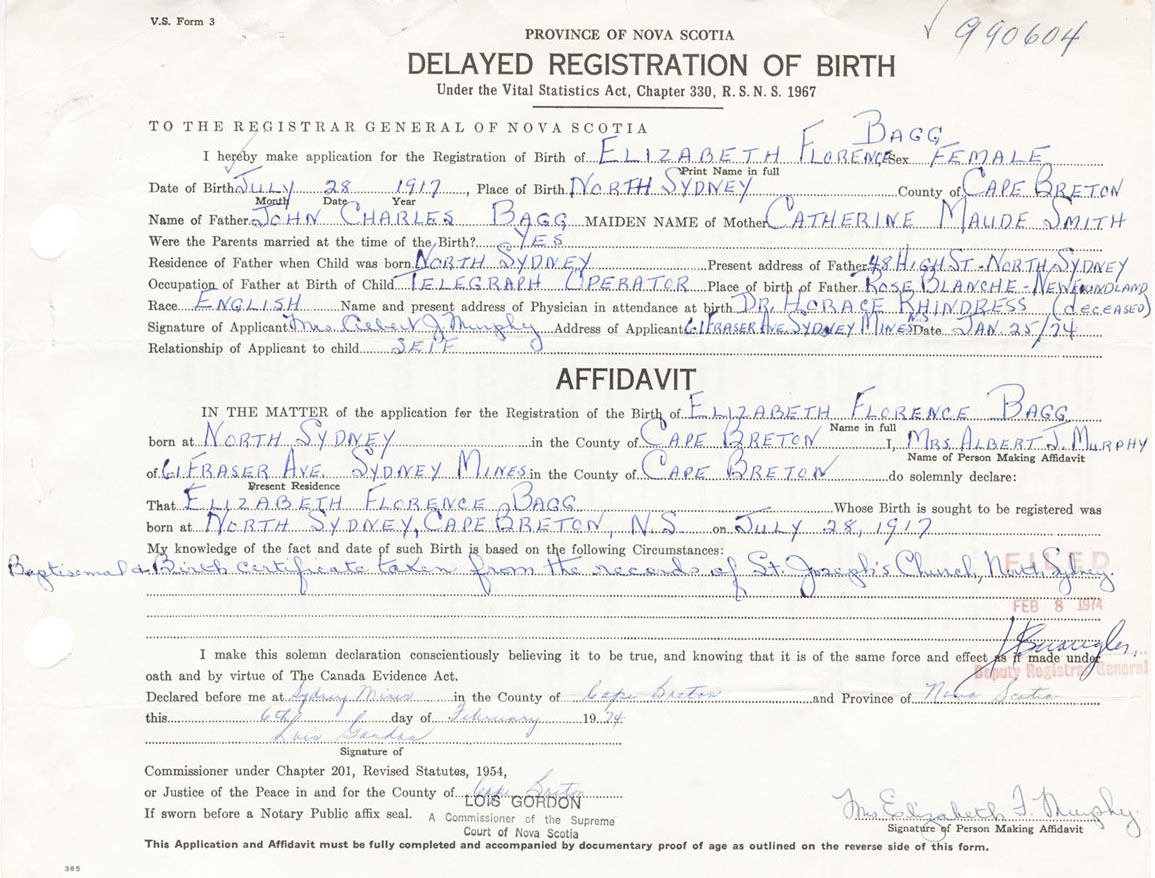 V.S. Form 3
990604
PROVINCE OF NOVA SCOTIA
DELAYED REGISTRATION OF BIRTH
Under the Vital Statistics Act, Chapter 330, R.S.N.S. 1967
TO THE REGISTRAR GENERAL OF NOVA SCOTIA
BAGG
I hereby make application for the Registration of Birth of ELIZABETH FLORENCE Sex FEMALE
Print Name in full
Date of Birth JULY 28 1917, Place of Birth NORTH SYDNEY County of CAPE BRETON
Month Date Year
Name of Father JOHN CHARLES BAGG MAIDEN NAME of Mother CATHERINE MAUDE SMITH
Were the Parents married at the time of the Birth? YES
Residence of Father when Child was born NORTH SYDNEY Present address of Father 48 HIGH ST - NORTH SYDNEY
Occupation of Father at Birth of Child TELEGRAPH OPERATOR Place of birth of Father ROSE BLANCHE - NEWFOUNDLAND
Race ENGLISH Name and present address of Physician in attendance at birth DR. HORACE RHINDRESS (DECEASED)
Signature of Applicant Mrs. Albert J. Murphy Address of Applicant 61 FRASER AVE. SYDNEY MINES NS Date JAN 25/74
Relationship of Applicant to child SELF
AFFIDAVIT
IN THE MATTER of the application for the Registration of the Birth of ELIZABETH FLORENCE BAGG
Name in full
born at NORTH SYDNEY in the County of CAPE BRETON I, MRS. ALBERT J. MURPHY
Name of Person Making Affidavit
of 61 FRASER AVE. SYDNEY MINES in the County of CAPE BRETON do solemnly declare:
Present Residence
That ELIZABETH FLORENCE BAGG Whose Birth is sought to be registered was
born at NORTH SYDNEY, CAPE BRETON, N.S. on JULY 28, 1917
My knowledge of the fact and date of such Birth is based on the following Circumstances:
FILED
Baptisemal & Birth certificate taken from the records of St. Joseph's Church, North Sydney.
FEB 8 1974
I make this solemn declaration conscientiously believing it to be true, and knowing that it is of the same force and effect as if made under
Deputy Registrar General
oath and by virtue of The Canada Evidence Act.
Declared before me at Sydney Mines in the County of Cape Breton and Province of Nova Scotia
this 6th day of February 1974
Lois Gordon
Signature of
Commissioner under Chapter 201, Revised Statutes, 1954,
or Justice of the Peace in and for the County of Cape Breton
LOIS GORDON
If sworn before a Notary Public affix seal. A Commissioner of the Supreme
Court of Nova Scotia
Mrs Elizabeth F. Murphy
Signature of Person Making Affidavit
This Application and Affidavit must be fully completed and accompanied by documentary proof of age as outlined on the reverse side of this form.
385